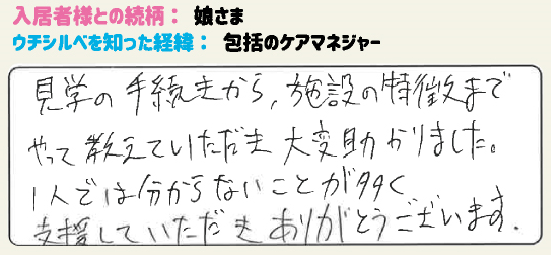 入居者様との続柄： 娘さま
ウチシルベを知った経緯： 包括のケアマネジャー
見学の手続きから，施設の特徴まで
やって教えていただき大変助かりました。
1人では分からないことが多く
支援していただきありがとうございます.